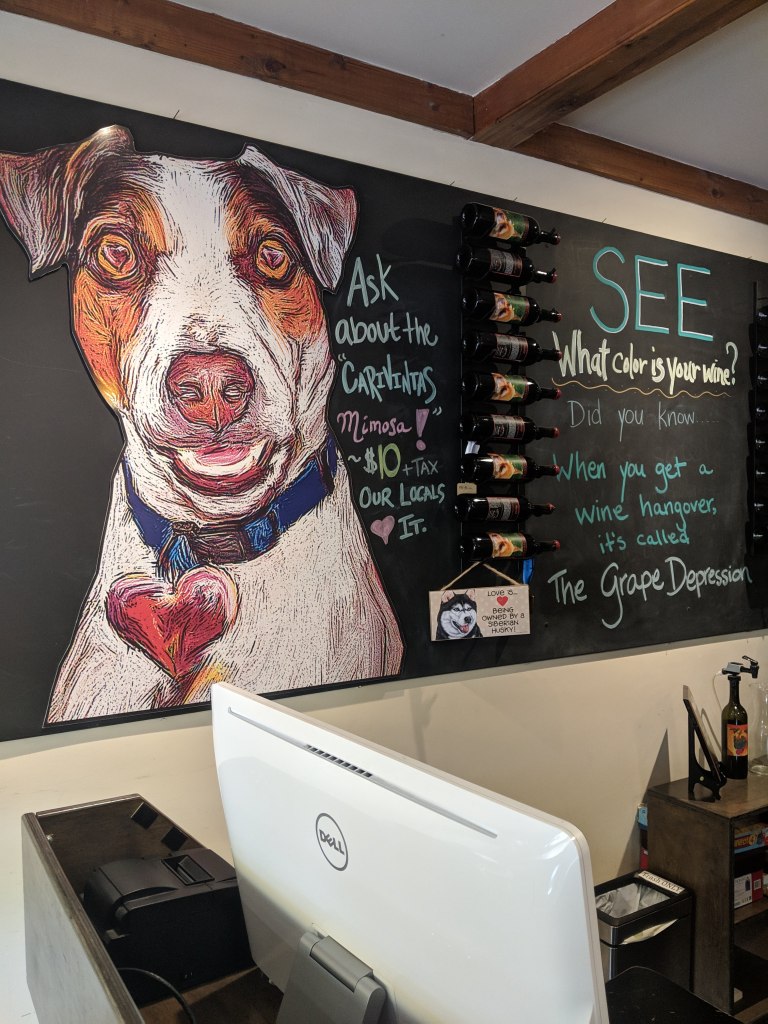 Ask
about the
"CARIVINTAS
Mimosa!"
~ $10 + TAX
OUR LOCALS
IT.
SEE
What color is your wine?
Did you know.....
When you get a
wine hangover,
it's called
The Grape Depression
LOVE IS...
BEING
OWNED BY A
SIBERIAN
HUSKY!
DELL
Trash ONLY